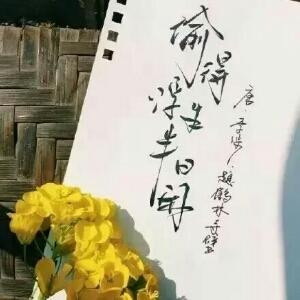 偷得
浮生
半日闲
唐·李涉/题鹤林寺壁